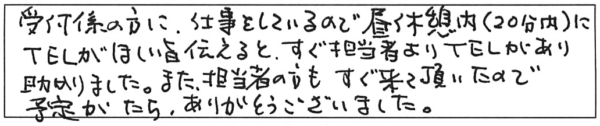 受付係の方に、仕事をしているので昼休憩内(20分内)に
TELがほしい旨伝えると、すぐ担当者よりTELがあり
助かりました。また、担当者の方も すぐ来て頂いたので
予定がたち、ありがとうございました。